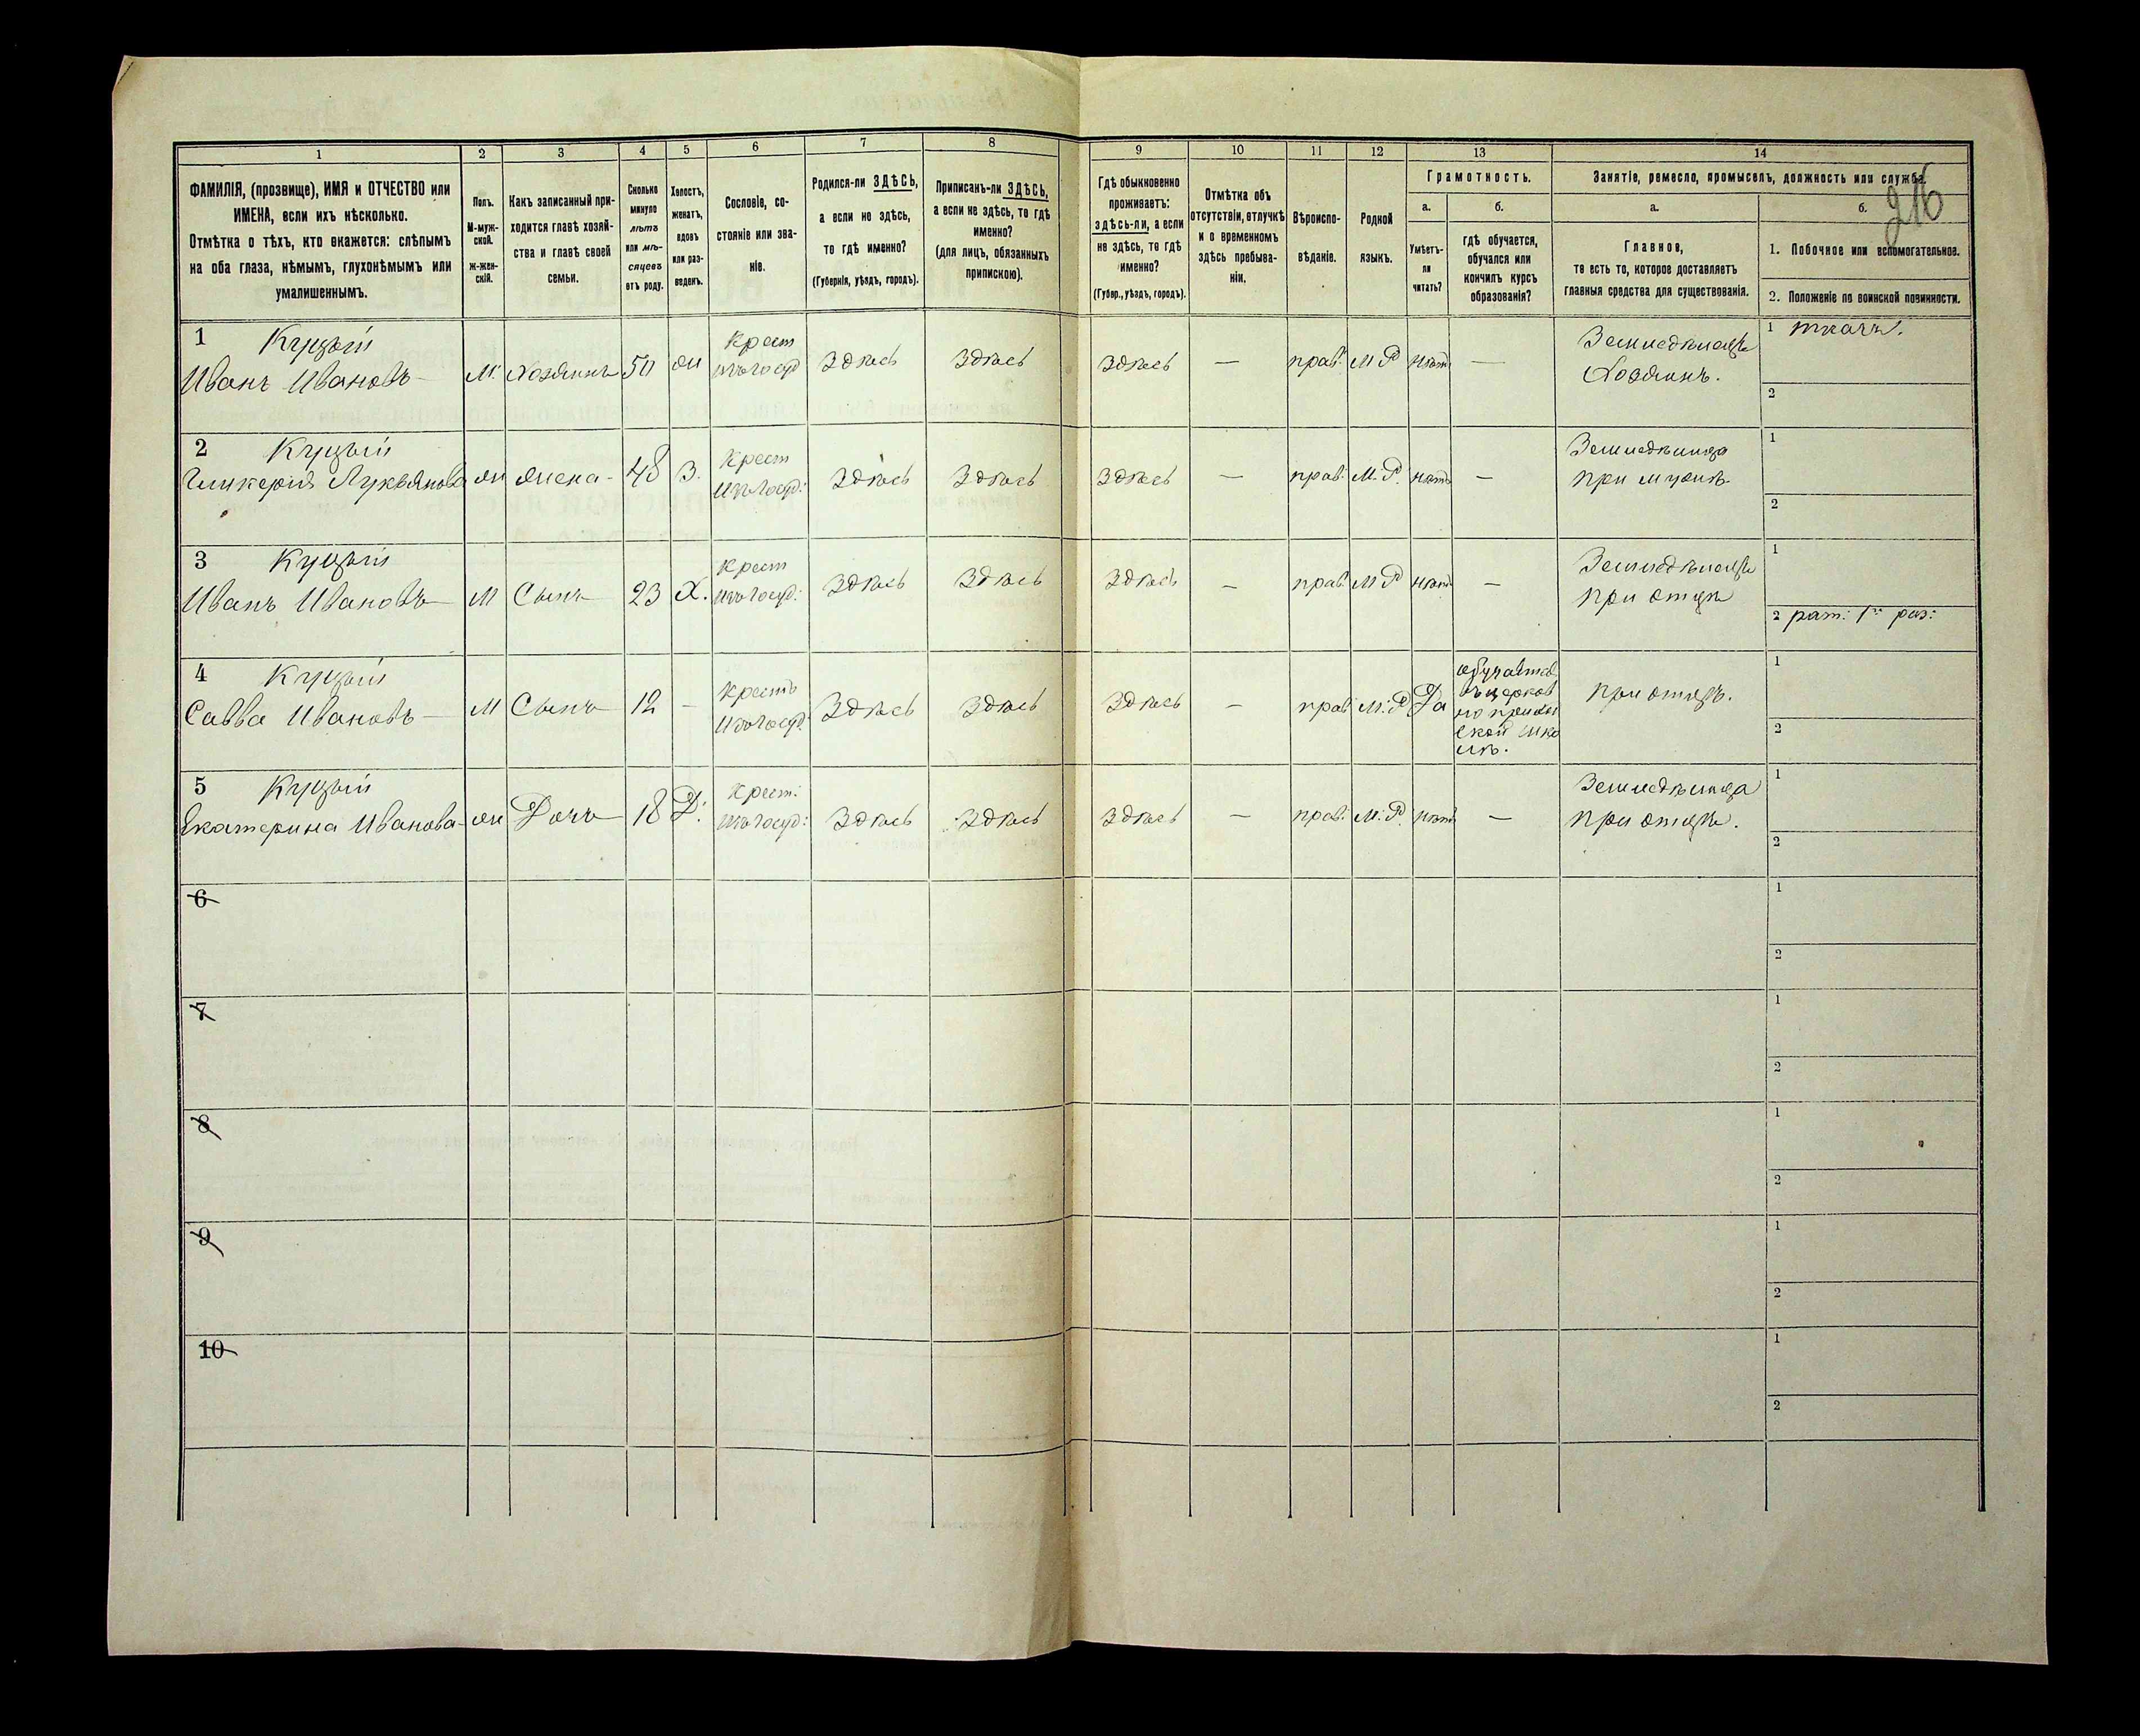 1 2 3 4 5 6 7 8 9 10 11 12 13 14
216
ФАМИЛІЯ, (прозвище), ИМЯ и ОТЧЕСТВО или
ИМЕНА, если ихъ нѣсколько.
Отмѣтка о тѣхъ, кто окажется: слѣпымъ
на оба глаза, нѣмымъ, глухонѣмымъ или
умалишеннымъ.
Полъ.
М-муж-
ской.
ж-жен-
скій.
Какъ записанный при-
ходится главѣ хозяй-
ства и главѣ своей
семьи.
Сколько
минуло
лѣтъ
или мѣ-
сяцевъ
отъ роду.
Холостъ,
женатъ,
вдовъ
или раз-
веденъ.
Сословіе, со-
стояніе или зва-
ніе.
Родился-ли ЗДѢСЬ,
а если не здѣсь,
то гдѣ именно?
(Губернія, уѣздъ, городъ).
Приписанъ-ли ЗДѢСЬ,
а если не здѣсь, то гдѣ
именно?
(для лицъ, обязанныхъ
припискою).
Гдѣ обыкновенно
проживаетъ:
здѣсь-ли, а если
не здѣсь, то гдѣ
именно?
(Губер., уѣздъ, городъ).
Отмѣтка объ
отсутствіи, отлучкѣ
и о временномъ
здѣсь пребыва-
ніи.
Вѣроиспо-
вѣданіе.
Родной
языкъ.
Грамотность.
а.
Умѣетъ-
ли
читать?
б.
гдѣ обучается,
обучался или
кончилъ курсъ
образованія?
Занятіе, ремесло, промыселъ, должность или служба.
а.
Главное,
то есть то, которое доставляетъ
главныя средства для существованія.
б.
1. Побочное или вспомогательное.
2. Положеніе по воинской повинности.
1 Куцый
Иванъ Ивановъ М. Хозяинъ 50 ж Крест
Здѣсь Здѣсь Здѣсь — прав. М Р нѣтъ — Земледѣлецъ
Хозяинъ.
1 ткачъ.
2
2 Куцый
Гликерія Лукьянова ж жена 48 З. Крест
Здѣсь Здѣсь Здѣсь — прав. М. Р. нѣтъ — Земледѣлица
при мужѣ
1
2
3 Куцый
Иванъ Ивановъ М Сынъ 23 Х. Крест
Здѣсь Здѣсь Здѣсь — прав. М Р нѣтъ — Земледѣлецъ
при отцѣ
1
2 рат: 1го раз:
4 Куцый
Савва Ивановъ М Сынъ 12 - Крестъ
Здѣсь Здѣсь Здѣсь — прав. М. Р Да
обучается
въ церков
но приход
ской шко
лѣ.
при отцѣ.
1
2
5 Куцый
Екатерина Иванова ж Дочь 18 Д. Крест.
Здѣсь Здѣсь Здѣсь — прав. М. Р. нѣтъ — Земледѣлица
при отцѣ.
1
2
6
1
2
7
1
2
8
1
2
9
1
2
10
1
2